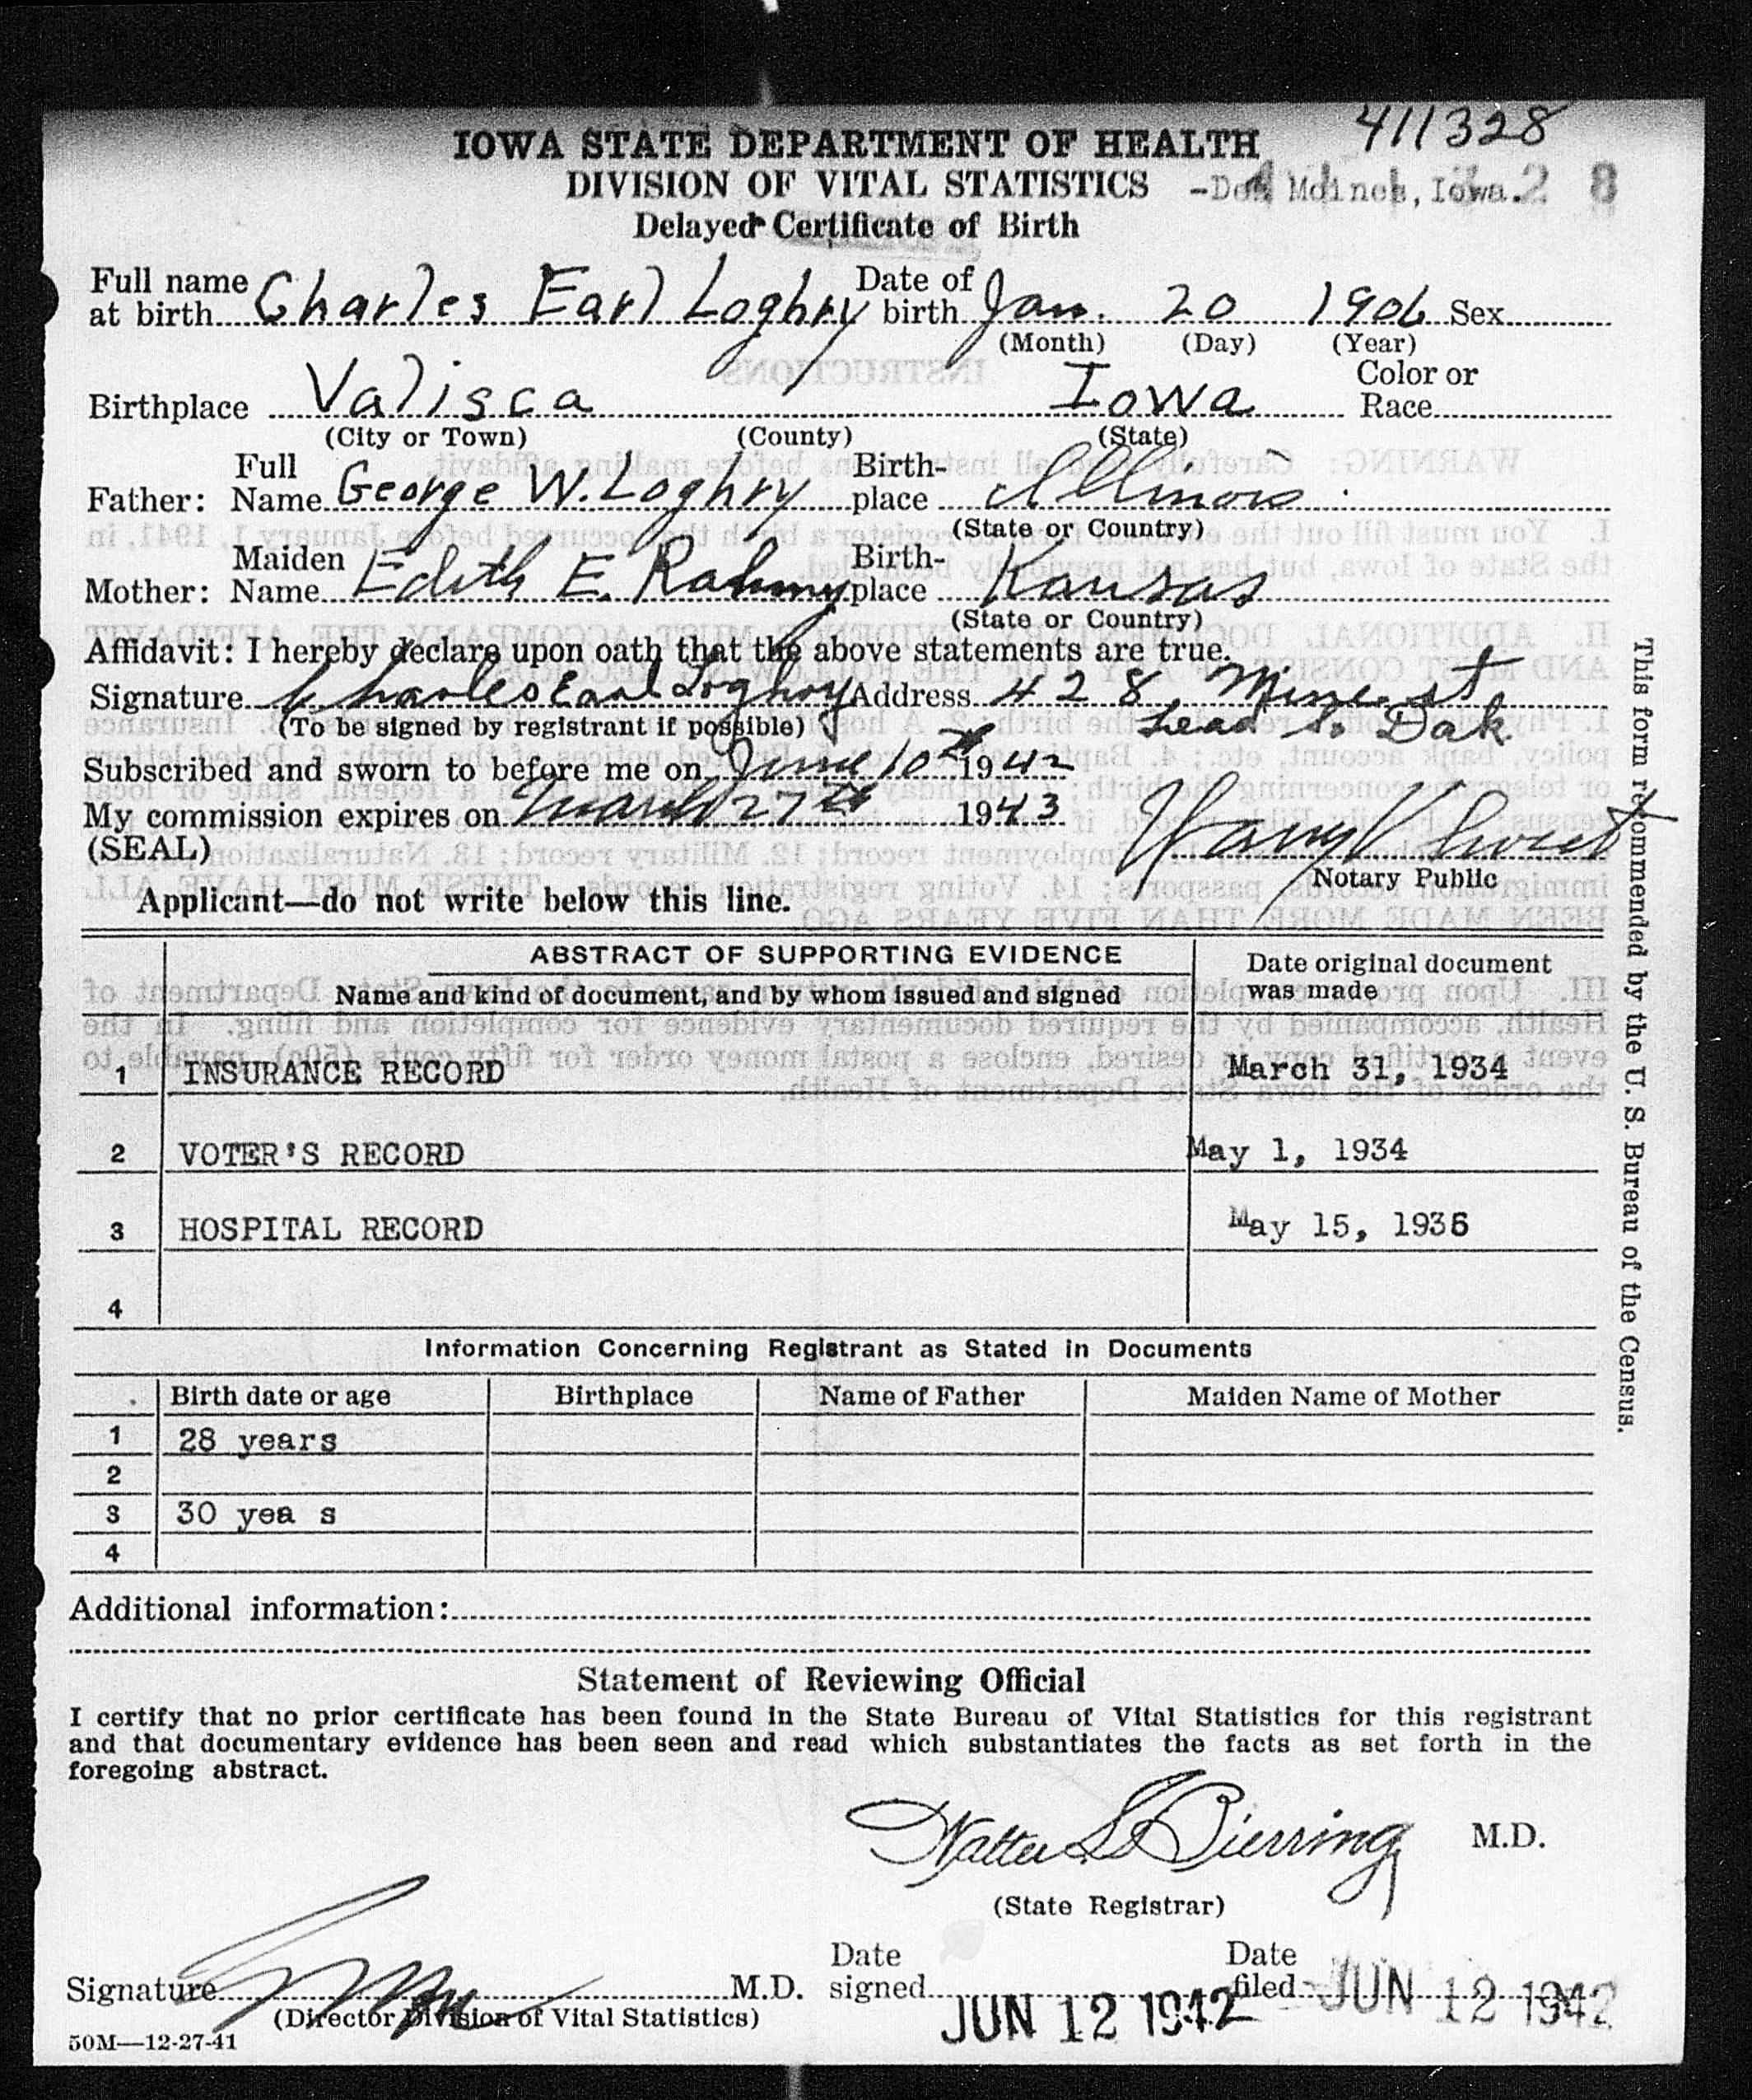 411328
IOWA STATE DEPARTMENT OF HEALTH
DIVISION OF VITAL STATISTICS -Des Moines, Iowa. 2 8
Delayed Certificate of Birth
Full name at birth Charles Earl Loghry Date of birth Jan. 20 1906 Sex
(Month) (Day) (Year)
Birthplace Valisca Iowa Color or Race
(City or Town) (County) (State)
Father: Full Name George W. Loghry Birth-place Illinois
(State or Country)
Mother: Maiden Name Edith E. Birth-place Kansas
(State or Country)
Affidavit: I hereby declare upon oath that the above statements are true.
Signature Charles Earl Loghry Address 428 Mine st
(To be signed by registrant if possible) Lead So Dak
Subscribed and sworn to before me on June 10 th 1942
My commission expires on March 27 th 1943
(SEAL)
Notary Public
Applicant—do not write below this line.
ABSTRACT OF SUPPORTING EVIDENCE
Name and kind of document, and by whom issued and signed
Date original document was made
1 INSURANCE RECORD March 31, 1934
2 VOTER'S RECORD May 1, 1934
3 HOSPITAL RECORD May 15, 1936
4
Information Concerning Registrant as Stated in Documents
Birth date or age Birthplace Name of Father Maiden Name of Mother
1 28 years
2
3 30 yea s
4
Additional information:
Statement of Reviewing Official
I certify that no prior certificate has been found in the State Bureau of Vital Statistics for this registrant
and that documentary evidence has been seen and read which substantiates the facts as set forth in the
foregoing abstract.
Walter L Bierring M.D.
(State Registrar)
Signature M.D. Date signed JUN 12 1942 Date filed JUN 12 1942
(Director Division of Vital Statistics)
50M—12-27-41
This form recommended by the U. S. Bureau of the Census.